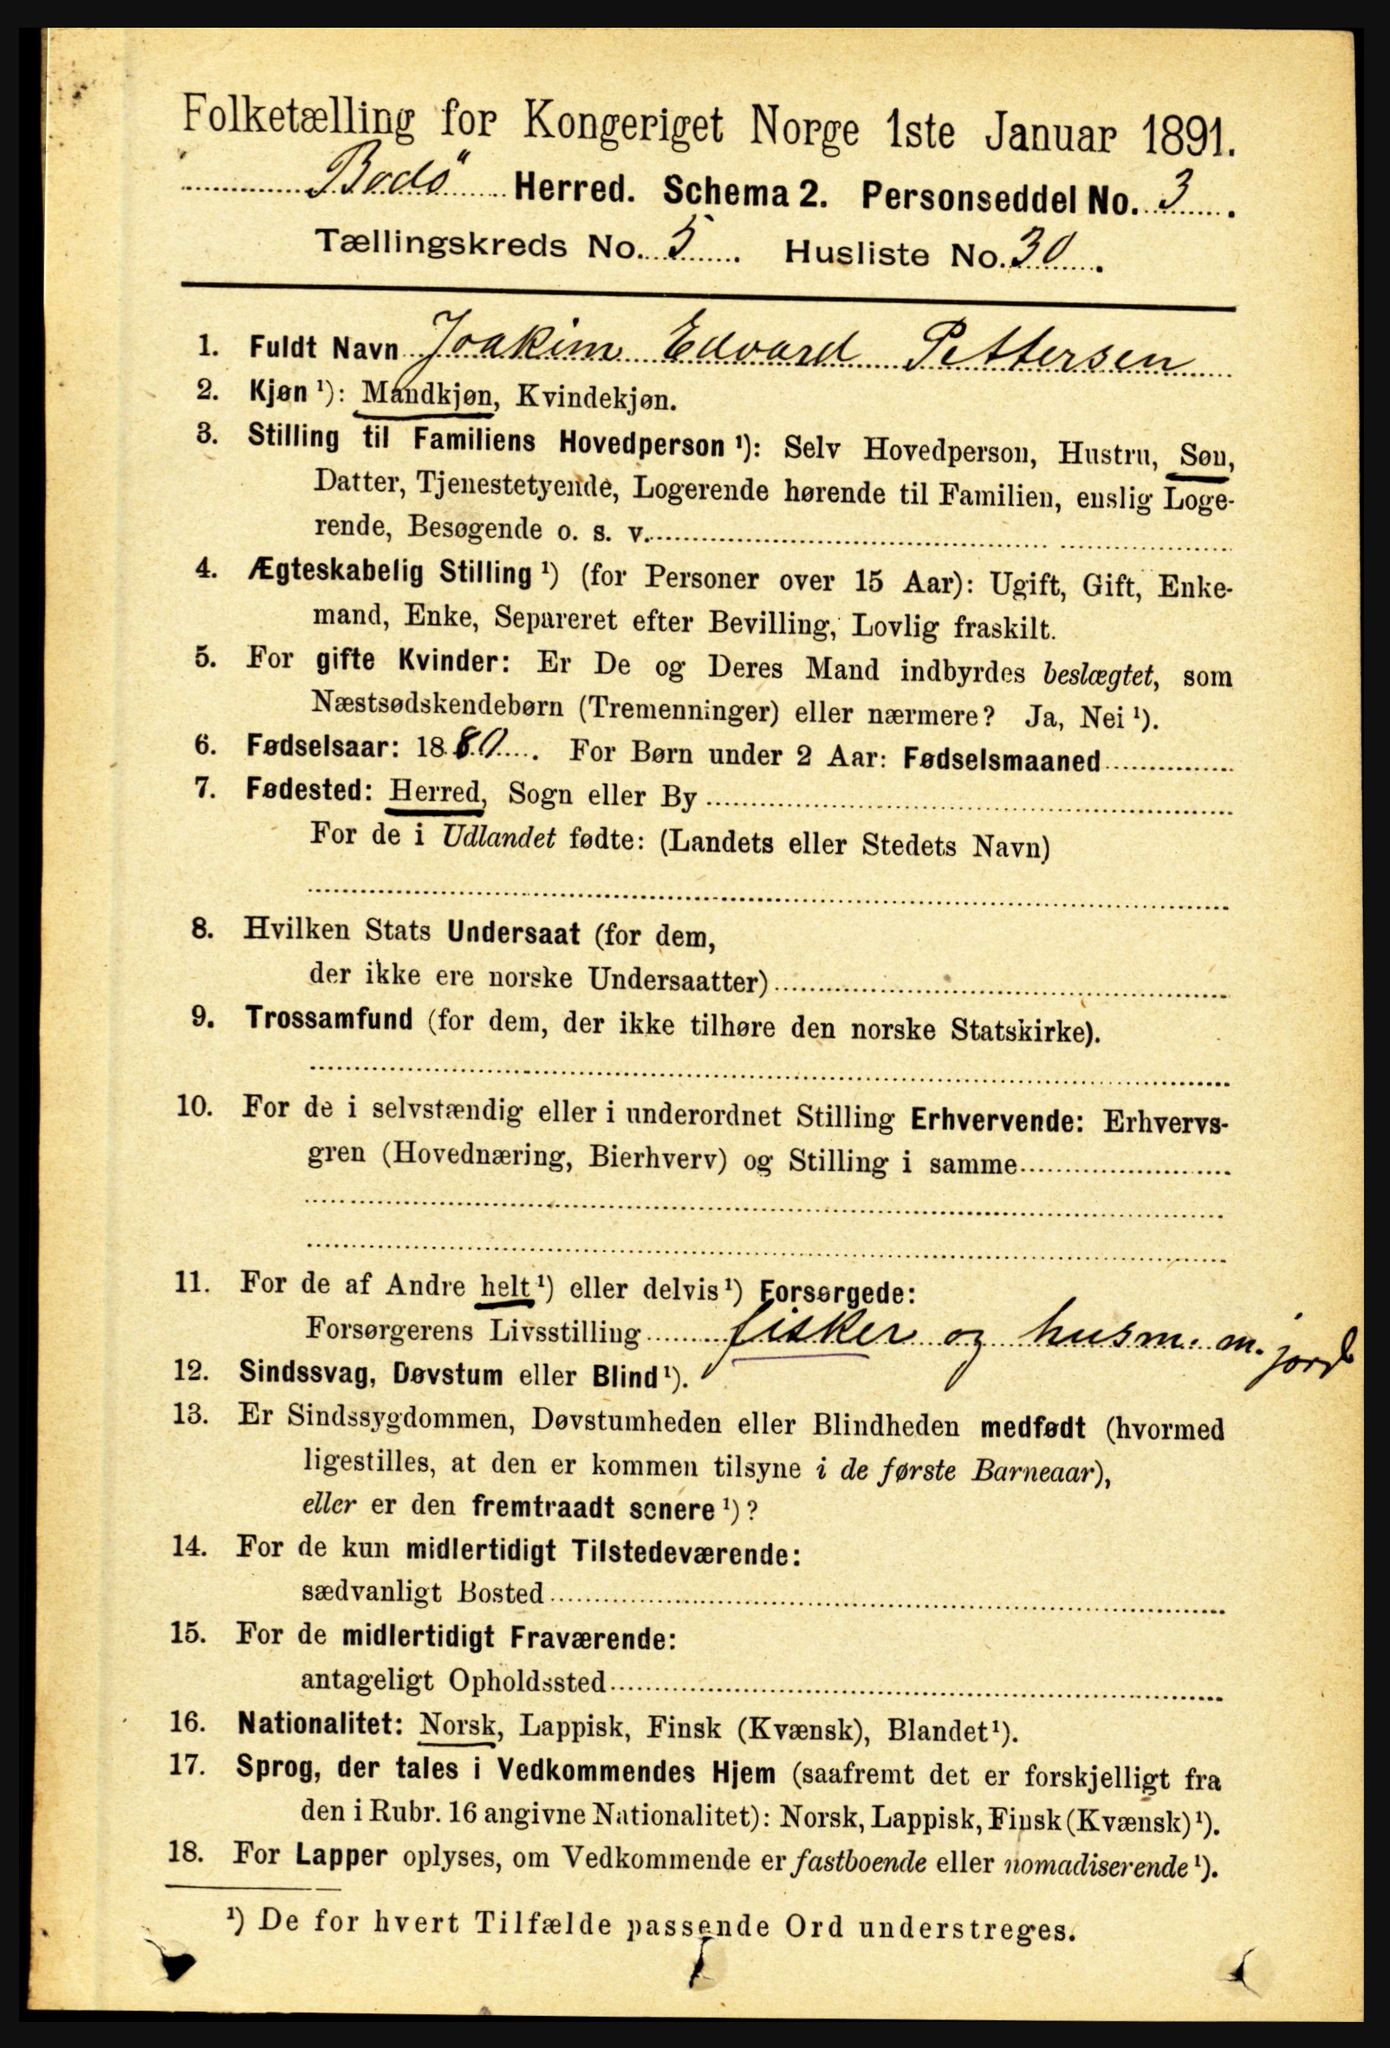 Folketælling for Kongeriget Norge 1ste Januar 1891.
Bodö Herred. Schema 2. Personseddel No. 3.
Tællingskreds No. 5. Husliste No. 30.
1. Fuldt Navn Joakim Edvard Pettersen
2. Kjøn ¹): Mandkjøn, Kvindekjøn.
3. Stilling til Familiens Hovedperson ¹): Selv Hovedperson, Hustru, Søn,
Datter, Tjenestetyende, Logerende hørende til Familien, enslig Loge-
rende, Besøgende o. s. v.
4. Ægteskabelig Stilling ¹) (for Personer over 15 Aar): Ugift, Gift, Enke-
mand, Enke, Separeret efter Bevilling, Lovlig fraskilt.
5. For gifte Kvinder: Er De og Deres Mand indbyrdes beslægtet, som
Næstsødskendebørn (Tremenninger) eller nærmere? Ja, Nei ¹).
6. Fødselsaar: 1880. For Børn under 2 Aar: Fødselsmaaned
7. Fødested: Herred, Sogn eller By
For de i Udlandet fødte: (Landets eller Stedets Navn)
8. Hvilken Stats Undersaat (for dem,
der ikke ere norske Undersaatter)
9. Trossamfund (for dem, der ikke tilhøre den norske Statskirke).
10. For de i selvstændig eller i underordnet Stilling Erhvervende: Erhvervs-
gren (Hovednæring, Bierhverv) og Stilling i samme
11. For de af Andre helt ¹) eller delvis ¹) Forsørgede:
Forsørgerens Livsstilling fisker og husm. m. jord
12. Sindssvag, Døvstum eller Blind ¹).
13. Er Sindssygdommen, Døvstumheden eller Blindheden medfødt (hvormed
ligestilles, at den er kommen tilsyne i de første Barneaar),
eller er den fremtraadt senere ¹)?
14. For de kun midlertidigt Tilstedeværende:
sædvanligt Bosted
15. For de midlertidigt Fraværende:
antageligt Opholdssted
16. Nationalitet: Norsk, Lappisk, Finsk (Kvænsk), Blandet ¹).
17. Sprog, der tales i Vedkommendes Hjem (saafremt det er forskjelligt fra
den i Rubr. 16 angivne Nationalitet): Norsk, Lappisk, Finsk (Kvænsk) ¹).
18. For Lapper oplyses, om Vedkommende er fastboende eller nomadiserende ¹).
¹) De for hvert Tilfælde passende Ord understreges.